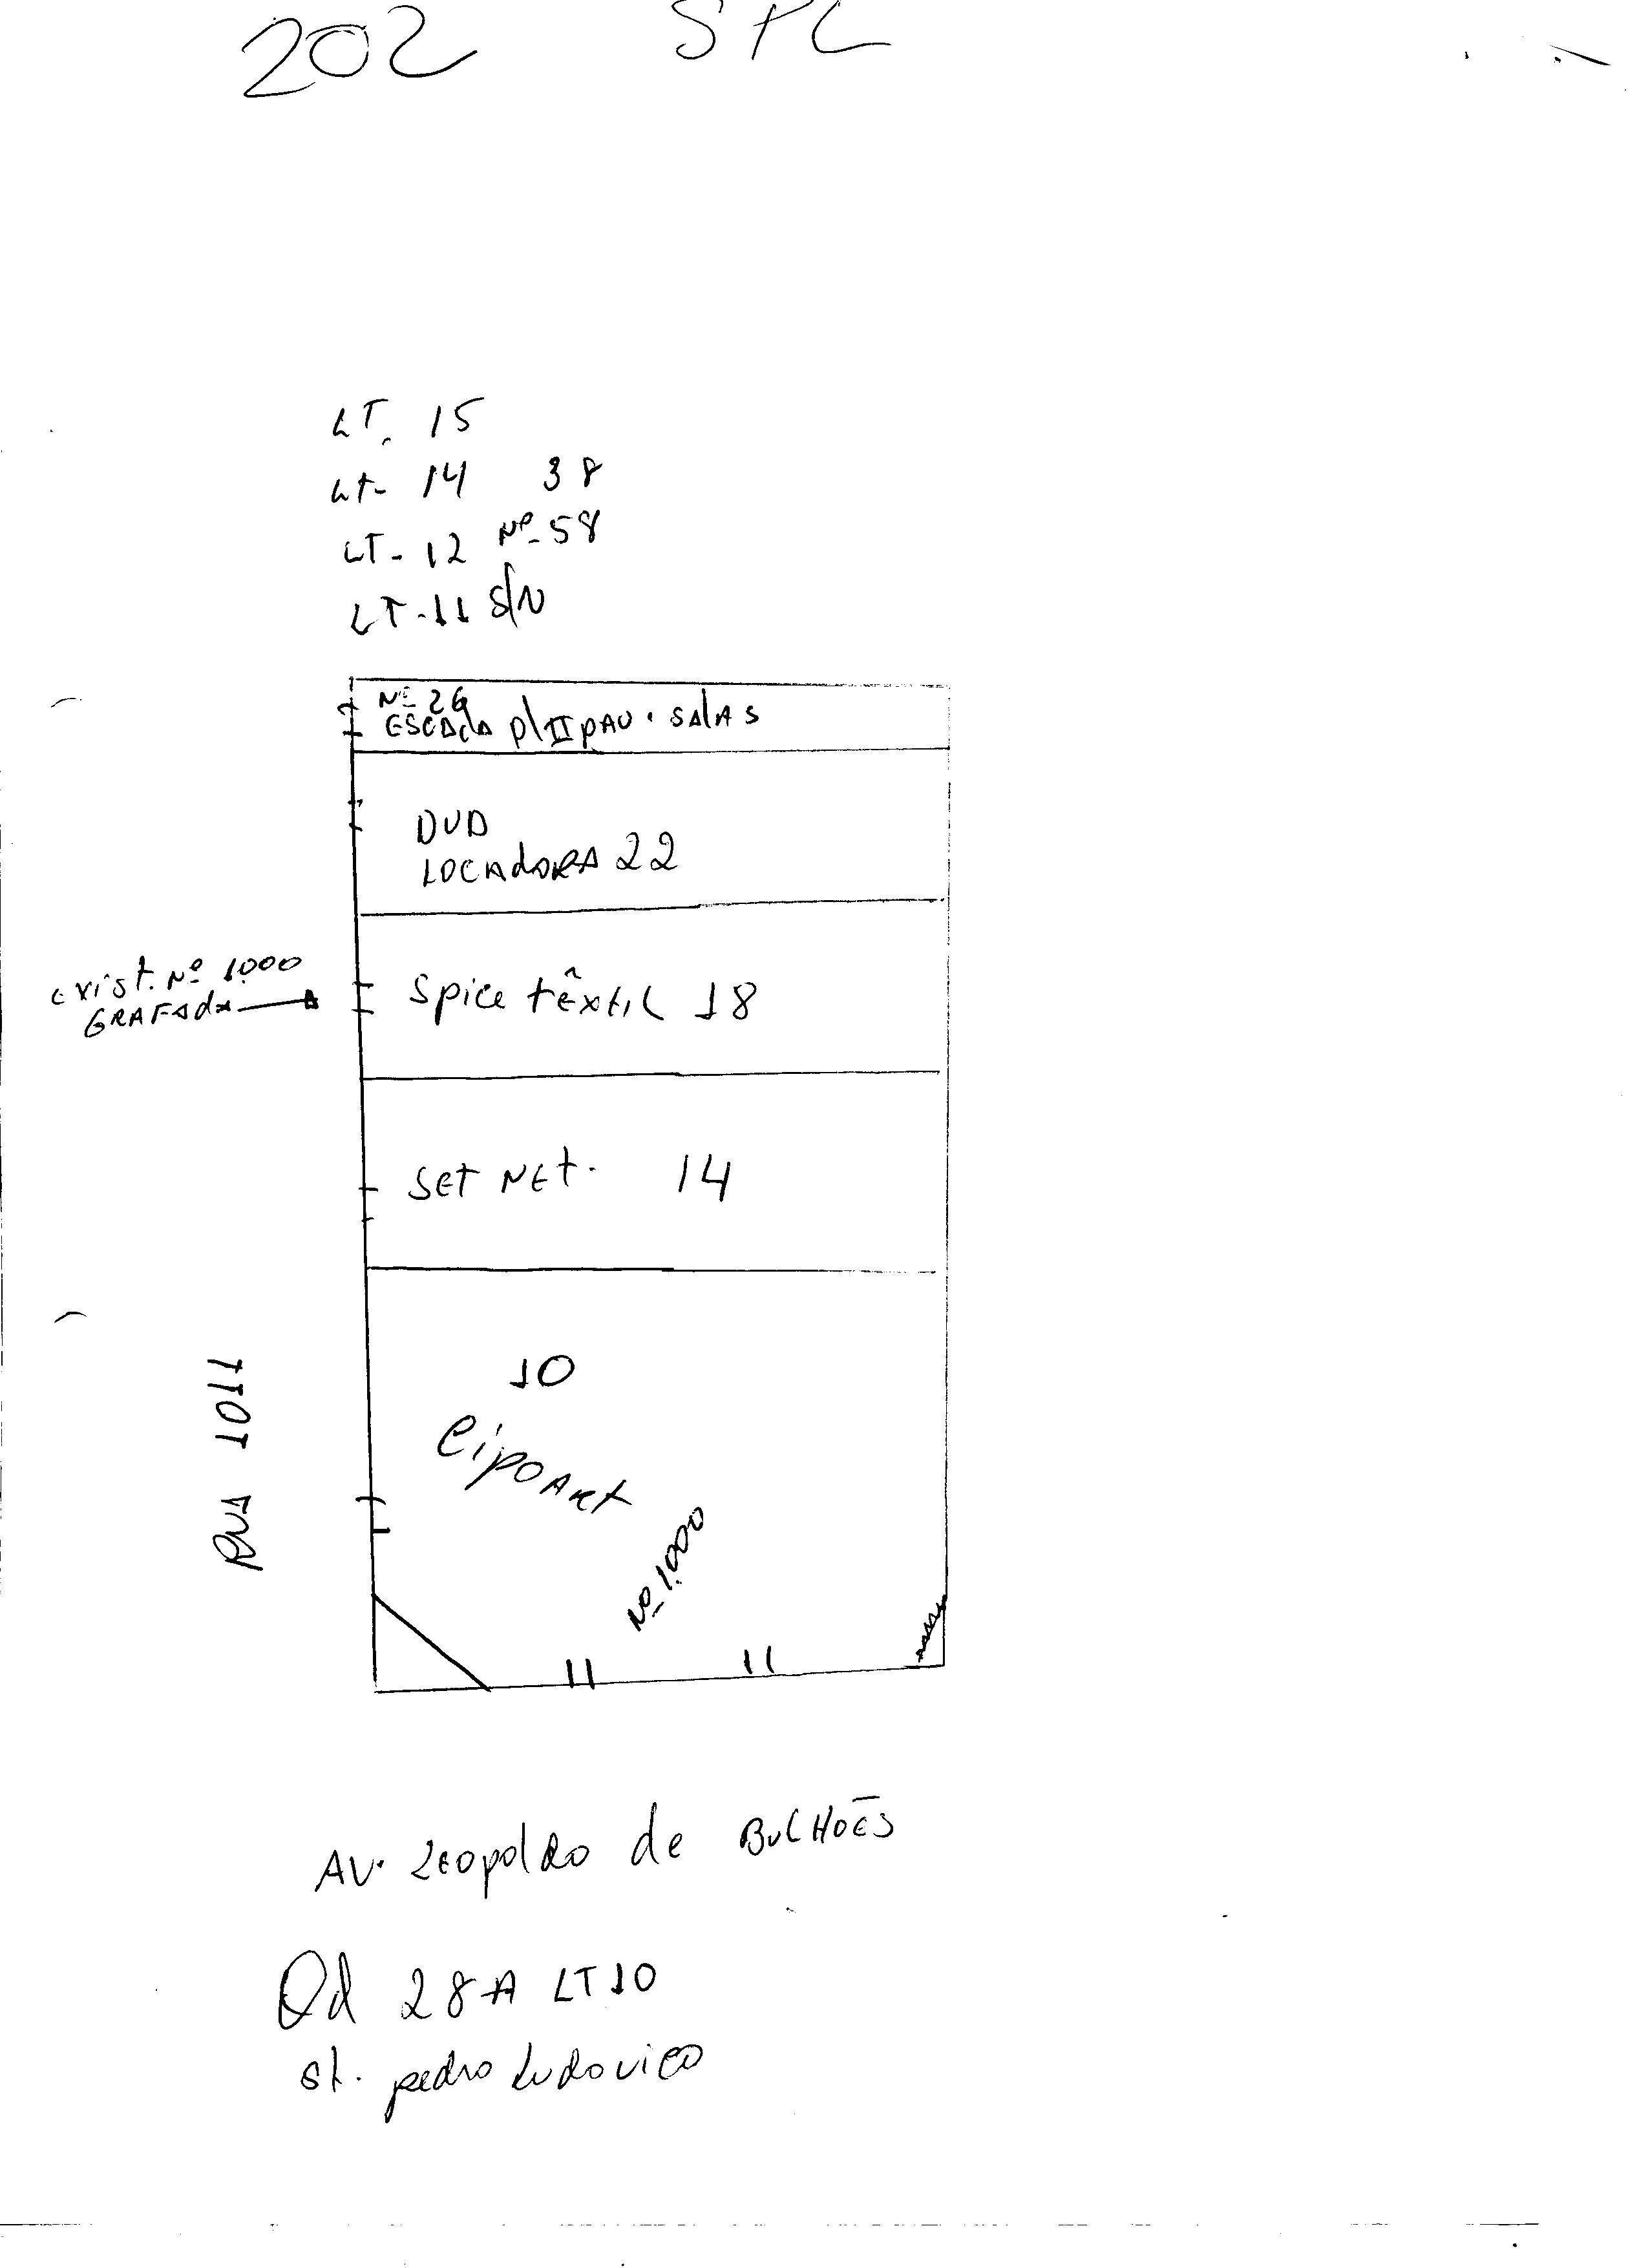 202 SPL
LT. 15
LT- 14 38
LT- 12 Nº 58
LT-11 S/N
Nº 26
ESCADA p/ II PAV. SALAS
DVD
LOCADORA 22
exist. Nº 1.000
GRAFADA
Spice têxtil 18
SET NET. 14
10
CipoArt
Nº 1.000
RUA 1011
AV. Leopoldo de BULHÕES
Qd 28-A LT 10
St. pedro Ludovico